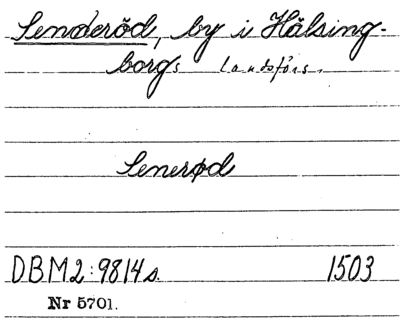 Senderöd, by i Hälsing-
borgs landsförs.
Senerød
DBM2:9814s. 1503
Nr 5701.